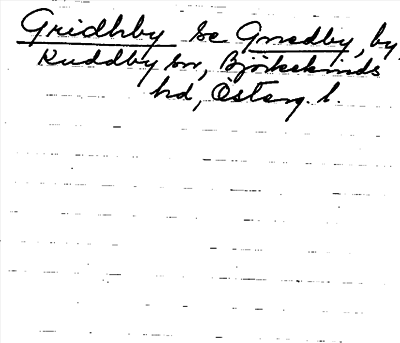 Gridhby se Gnedby, by,
Kuddby sn, Björkekinds
hd, Österg. l.